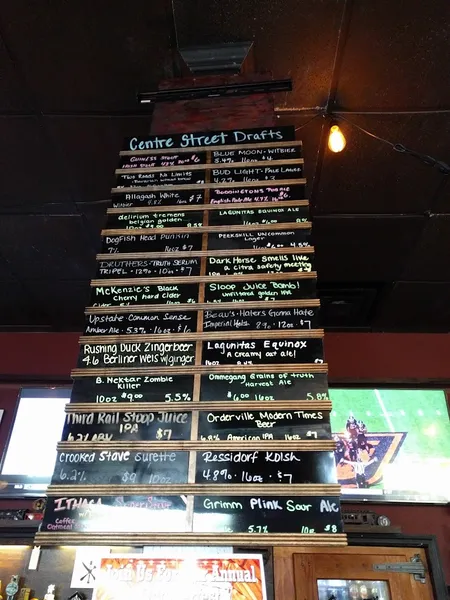 Centre Street Drafts
GUINESS STOUT
IRISH STOUT 4.3% 20oz $6
BLUE MOON · WITBIER
5.4% 16oz $4
Two Roads No Limits
BUD LIGHT · PALE LAGER
4.2% 16oz $3
Allagash White
Witbier 16oz $7
BODDINGTONS PUB ALE
English Pale Ale 4.7% 16oz $6
delirium tremens
belgian golden
10oz $9.00 8.5%
LAGUNITAS EQUINOX ALE
16oz $6.00 8%
Dogfish Head Punkin
7% 16oz $7
PEEKSKILL UNCOMMON
Lager
16oz $6.00 4.5%
DRUTHERS · TRUTH SERUM
TRIPEL · 12% · 10oz · $7
Dark Horse Smells like
a Citra safety meeting
McKENZiE'S Black
Cherry hard Cider
Sloop Juice Bomb!
unfiltered golden IPA
Upstate Common Sense
Amber Ale · 5.3% · 16oz · $6
Beau's · Haters Gonna Hate
Imperial 12oz · $7
Rushing Duck Zingerbeer
4.6 Berliner Weis w/ginger
Lagunitas Equinox
A creamy oat ale!
B. Nektar Zombie
Killer
10oz $9.00 5.5%
Ommegang Grains of truth
Harvest Ale
$6.00 16oz 5.8%
Third Rail Stoop Juice
IPA
$7
Orderville Modern Times
Beer
American IPA 16oz $7
Crooked Stave Surette
6.2% $9 10oz
Rossidorf Kolsh
4.8% 16oz · $7
ITHACA
Coffee
Oatmeal
Grimm Plink Sour Ale
5.7% 10oz $8
Join Us For Annual